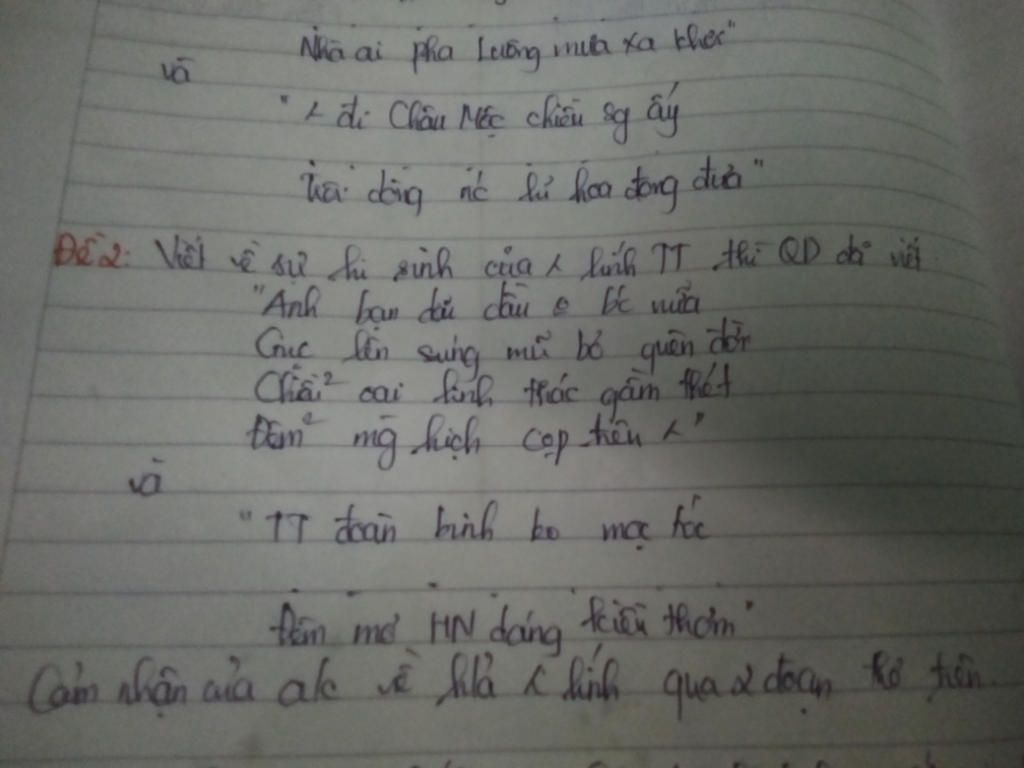 Nhà ai pha Luông mưa xa khơi"
và
"< đi Châu Mộc chiều sg ấy
Trôi dòng nc lũ hoa đong đưa"
Đề 2: Viết về sự hi sinh của < lính TT thì QD đã viết
"Anh bạn dãi dầu o bc nữa
Gục lên súng mũ bỏ quên đời
Chiều² oai linh thác gầm thét
Đêm² mg hịch cọp trêu <"
và
"TT đoàn binh ko mọc tóc
Đêm mơ HN dáng kiều thơm"
Cảm nhận của a/c về h/ả < lính qua 2 đoạn thơ trên